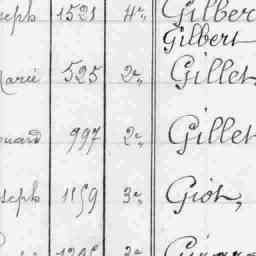 seph 1521 4e Gilber
Gilbert
Marie 525 2e Gillet
ouard 997 2e Gillet
seph 1159 3e Giot,